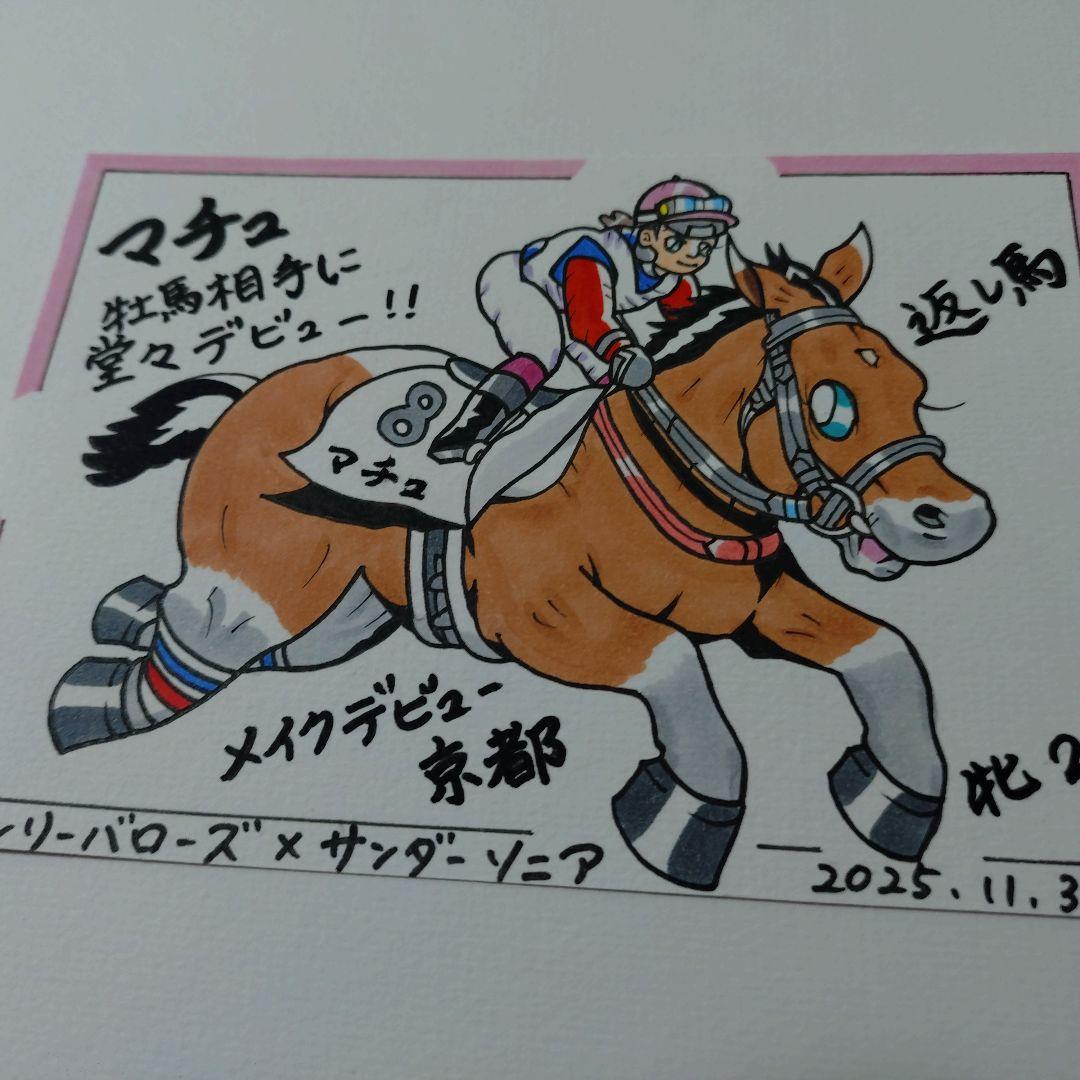 マチュ
牡馬相手に
堂々デビュー!!
返し馬
8
マチュ
メイクデビュー
京都
牝2
ンリーバローズ×サンダーソニア
2025.11.3